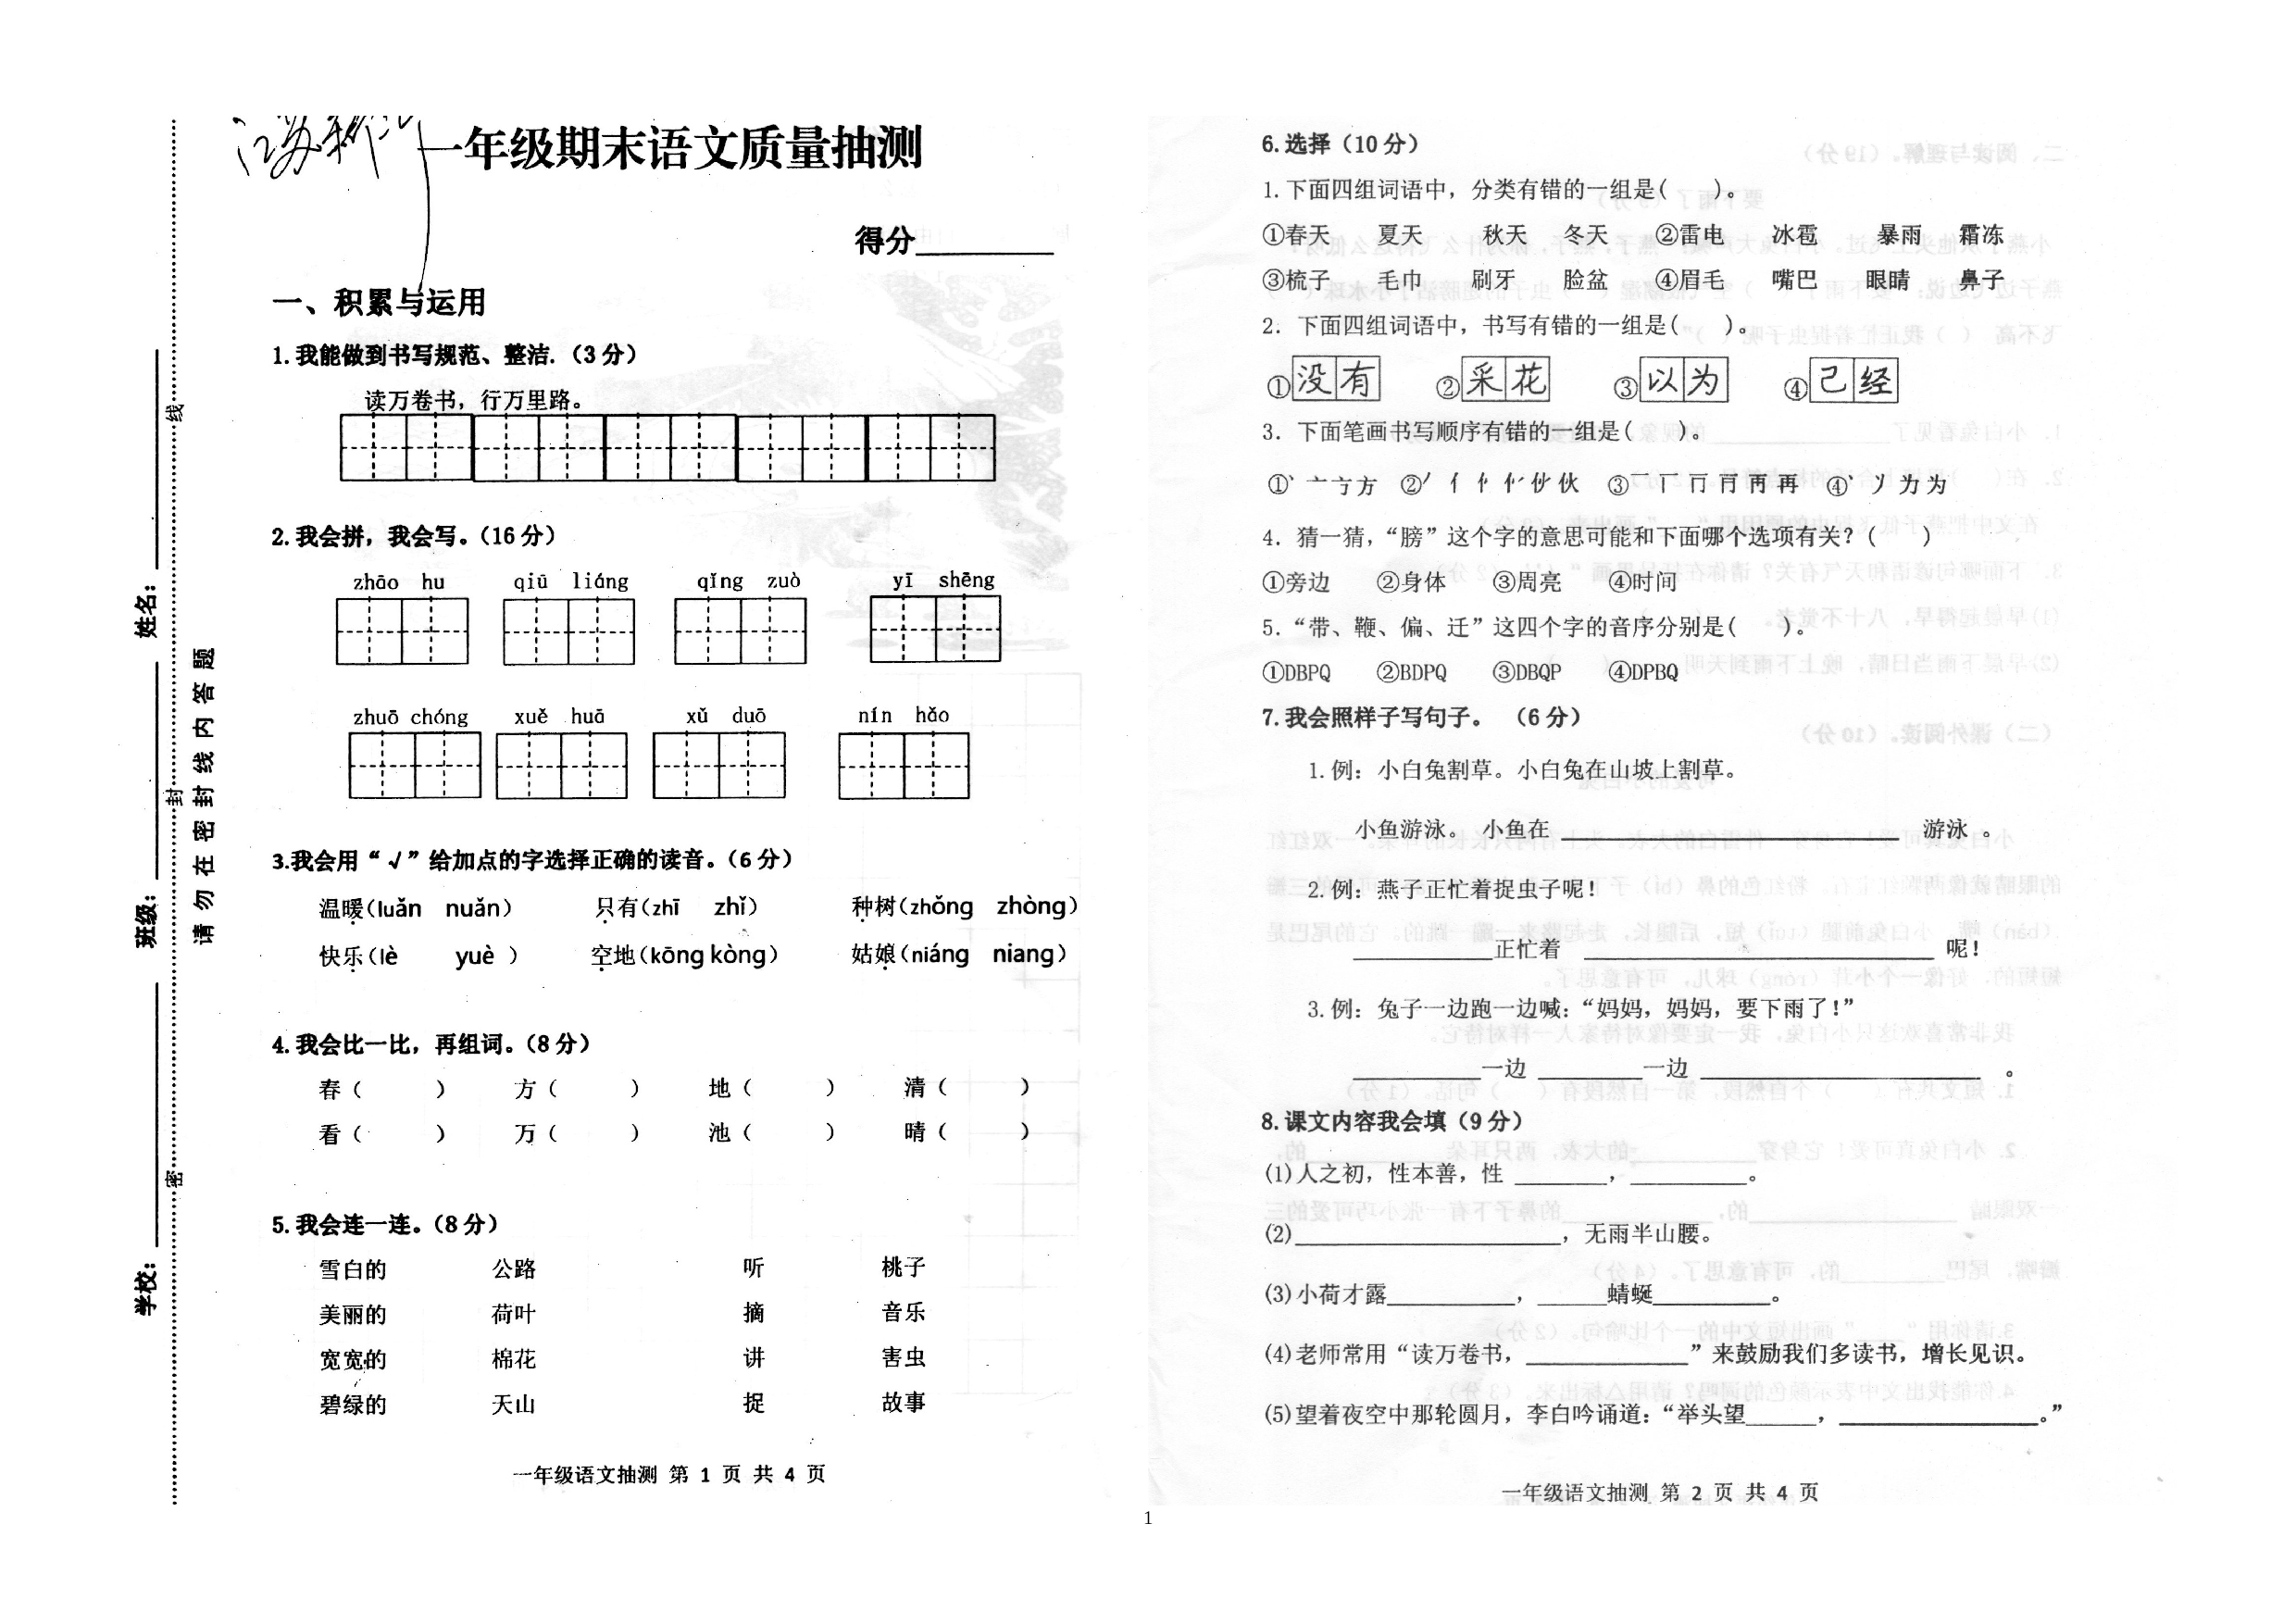 一年级期末语文质量抽测
得分
一、积累与运用
1.我能做到书写规范、整洁.(3分)
读万卷书，行万里路。
2.我会拼，我会写。(16分)
zhāo hu qiū liáng qǐng zuò yī shēng
zhuō chóng xuě huā xǔ duō nín hǎo
3.我会用“√”给加点的字选择正确的读音。(6分)
温暖(luǎn nuǎn) 只有(zhī zhǐ) 种树(zhǒng zhòng)
快乐(lè yuè) 空地(kōng kòng) 姑娘(niáng niang)
4.我会比一比，再组词。(8分)
春( ) 方( ) 地( ) 清( )
看( ) 万( ) 池( ) 晴( )
5.我会连一连。(8分)
雪白的 公路 听 桃子
美丽的 荷叶 摘 音乐
宽宽的 棉花 讲 害虫
碧绿的 天山 捉 故事
一年级语文抽测 第 1 页 共 4 页
学校： 班级： 姓名：
密 封 线
请勿在密封线内答题
6.选择(10分)
1.下面四组词语中，分类有错的一组是( )。
①春天 夏天 秋天 冬天 ②雷电 冰雹 暴雨 霜冻
③梳子 毛巾 刷牙 脸盆 ④眉毛 嘴巴 眼睛 鼻子
2. 下面四组词语中，书写有错的一组是( )。
①没有 ②采花 ③以为 ④己经
3. 下面笔画书写顺序有错的一组是( )。
4. 猜一猜，“膀”这个字的意思可能和下面哪个选项有关？( )
①旁边 ②身体 ③周亮 ④时间
5.“带、鞭、偏、迁”这四个字的音序分别是( )。
①DBPQ ②BDPQ ③DBQP ④DPBQ
7.我会照样子写句子。 (6分)
1.例：小白兔割草。小白兔在山坡上割草。
小鱼游泳。 小鱼在 游泳 。
2.例：燕子正忙着捉虫子呢！
正忙着 呢！
3.例：兔子一边跑一边喊：“妈妈，妈妈，要下雨了！”
一边 一边 。
8.课文内容我会填(9分)
(1)人之初，性本善，性 ， 。
(2) ，无雨半山腰。
(3)小荷才露 ， 蜻蜓 。
(4)老师常用“读万卷书， ”来鼓励我们多读书，增长见识。
(5)望着夜空中那轮圆月，李白吟诵道：“举头望 ， 。”
一年级语文抽测 第 2 页 共 4 页
1